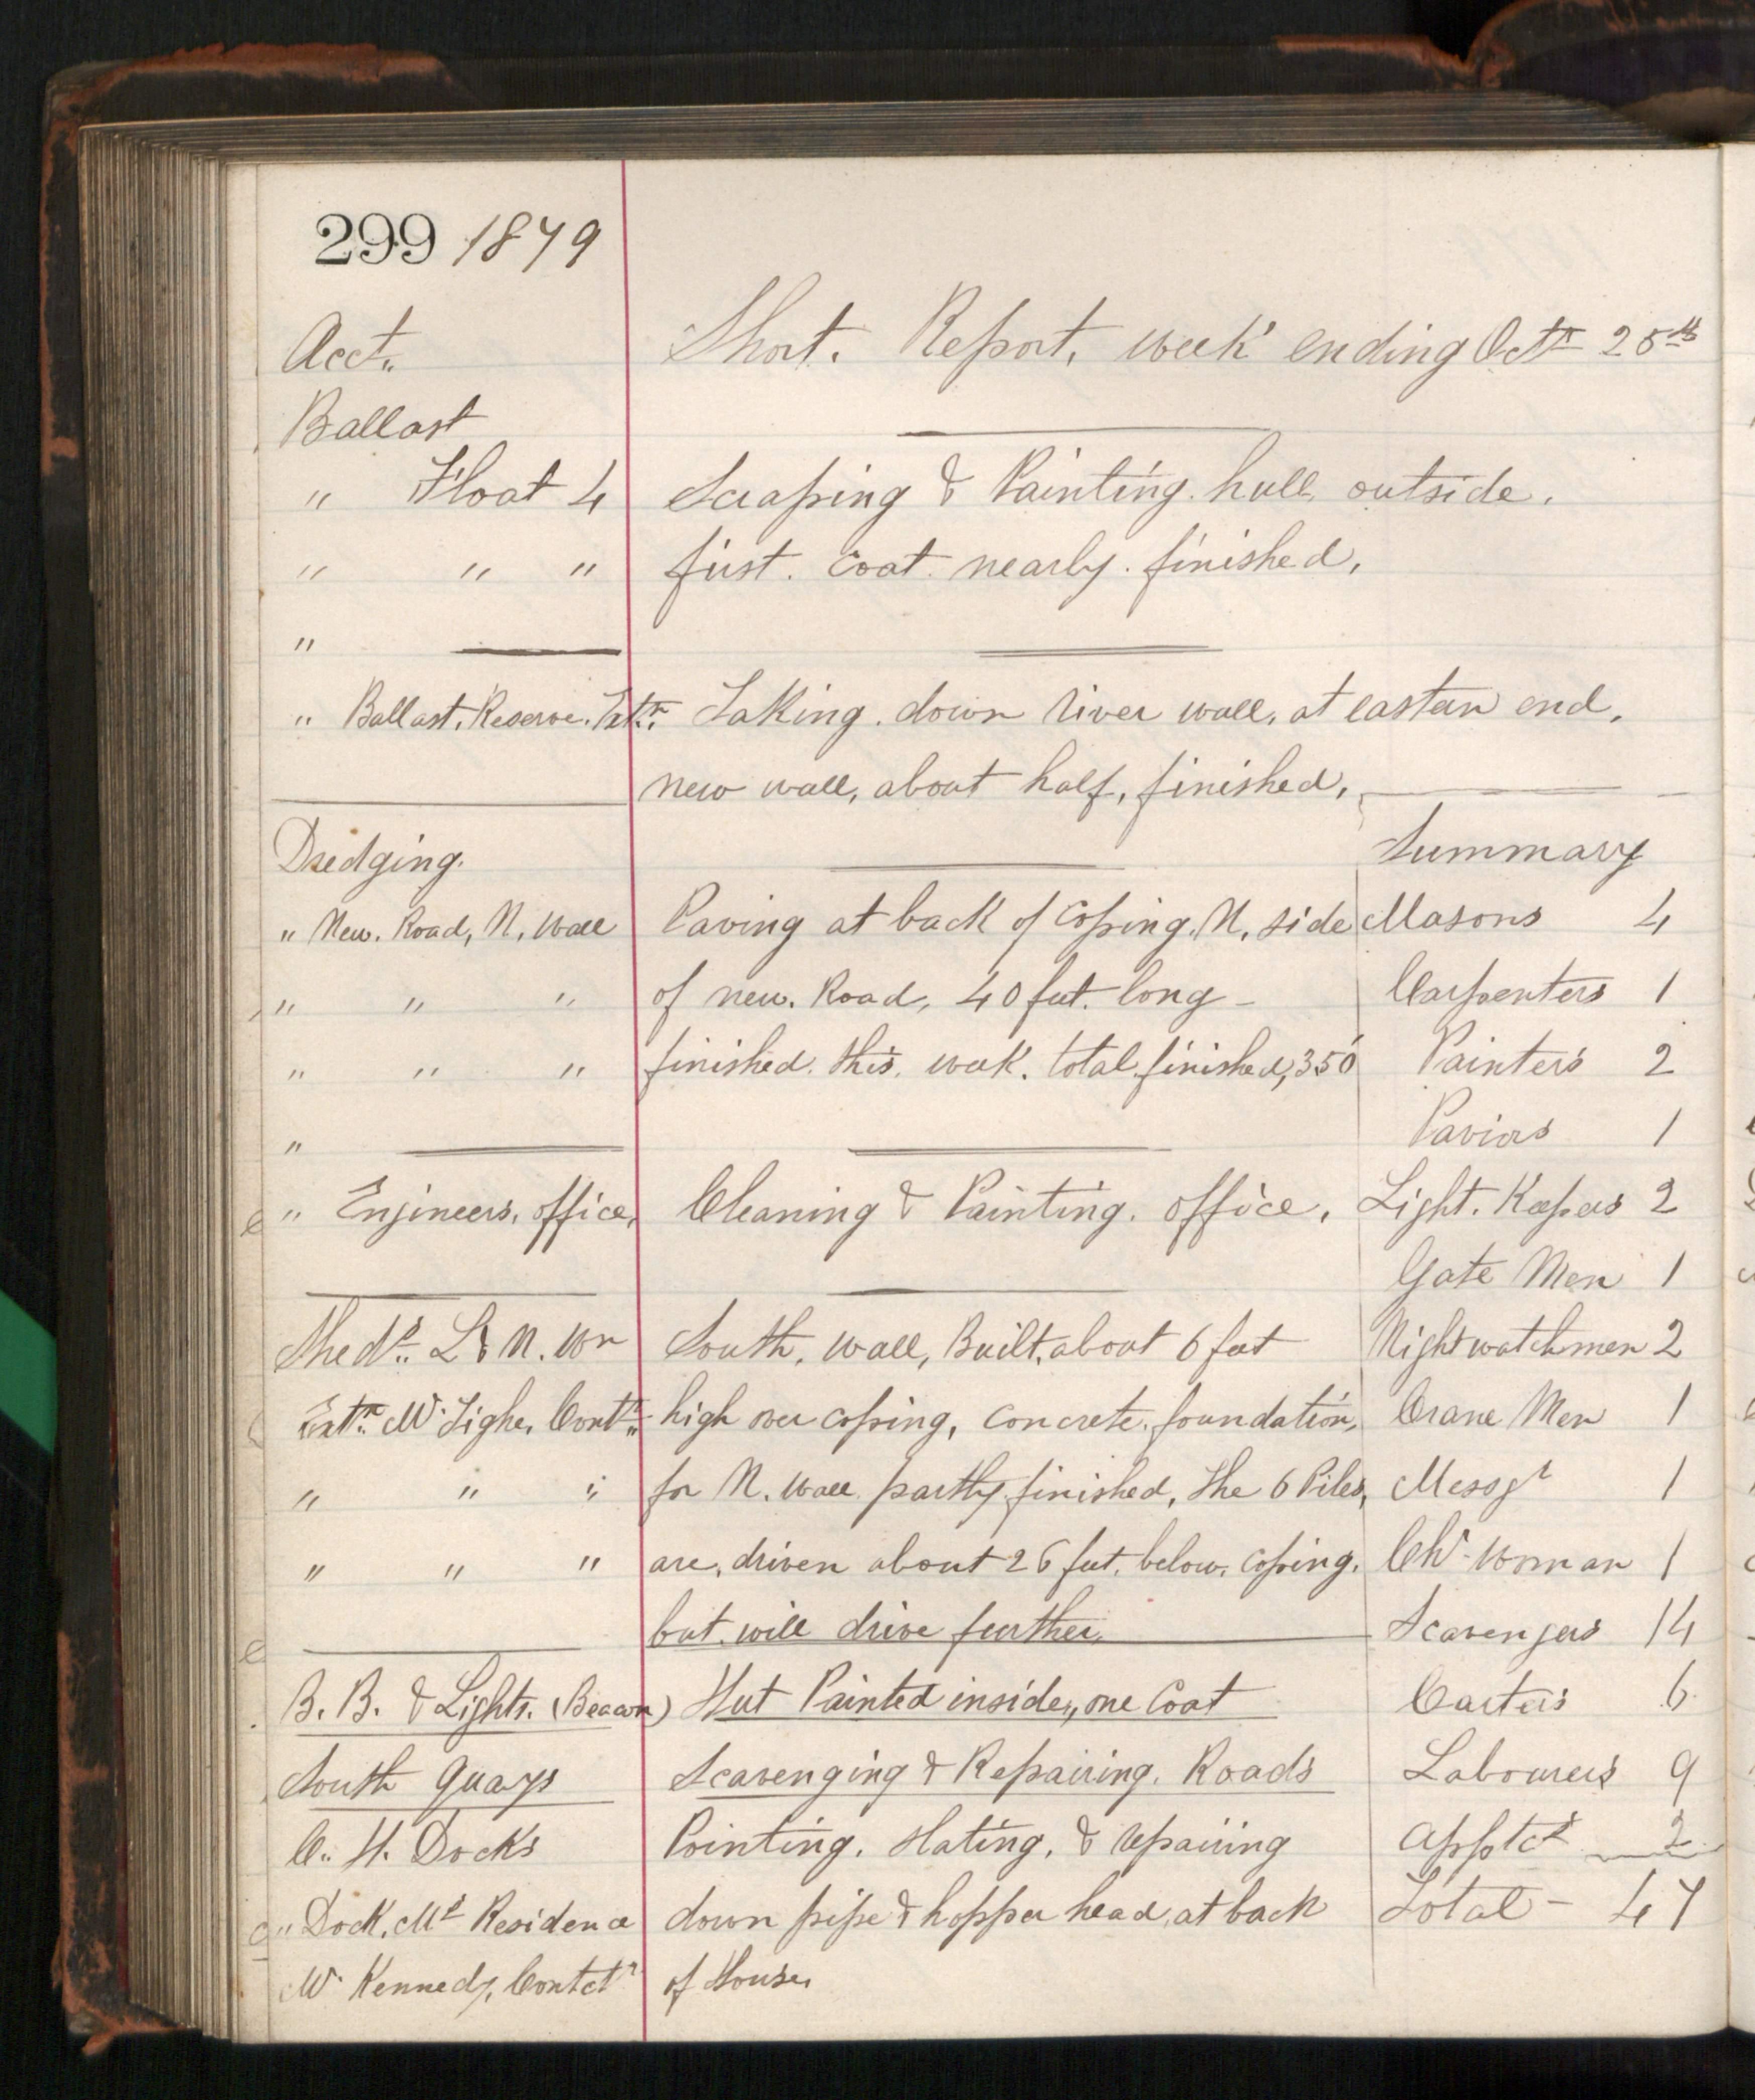 299 1879
Acct. Short. Report, week ending Octr 25th
Ballast
" Float 4 Scraping & Painting hull outside.
" " " first. coat. nearly. finished,
"
" Ballast. Reserve. Extn. Taking. down river wall, at eastern end.
new wall, about half, finished,
Dredging. Summary
" New. Road, N. Wall Paving at back of Coping. N. side Masons 4
" " " of new. Road, 40 feet. long - Carpenters 1
" " " finished. this. week. total finished, 350 Painters 2
" Paviors 1
" Engineers, office, Cleaning & Painting. office. Light. Keepers 2
Gate Men 1
ShedS. L & N. Wn South. wall, Built. about 6 feet Nightwatchmen 2
Extn. Mr Tighe, Contr. high over coping, concrete. foundation, Crane Men 1
" " " for N. Wall partly finished, The 6 Piles, Messgr 1
" " " are, driven about 26 feet. below. Coping. Woman 1
but. will drive further. Scavengers 14
B. B. & Lights. (Beacon) Hut Painted inside, one Coat Carters 6
South Quays Scavenging & Repairing. Roads Labourers 9
C. H. Docks Pointing. Slating. & repairing Apptcs 2
" Dock. Mr Residence down pipe & hopper head, at back Total - 47
Mr Kennedy, Contctr of House.